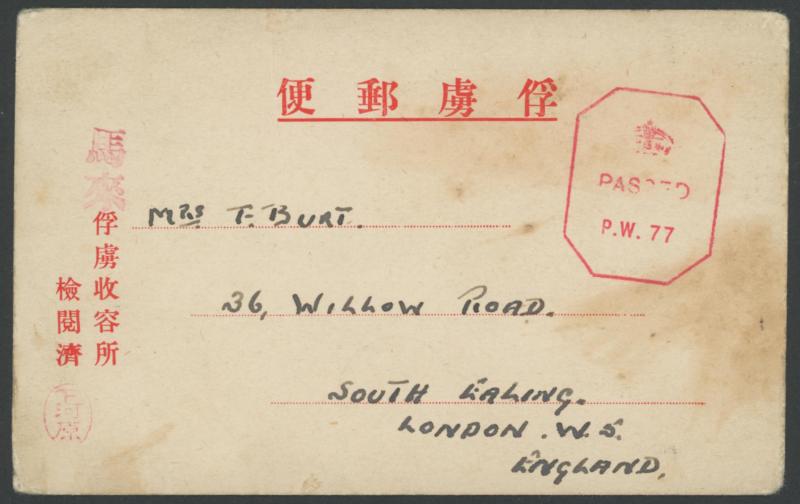 俘虜郵便
PASSED
P.W. 77
馬來
俘虜收容所
檢閱濟
MRS F. BURT.
36, WILLOW ROAD.
SOUTH EALING.
LONDON. W.5.
ENGLAND.